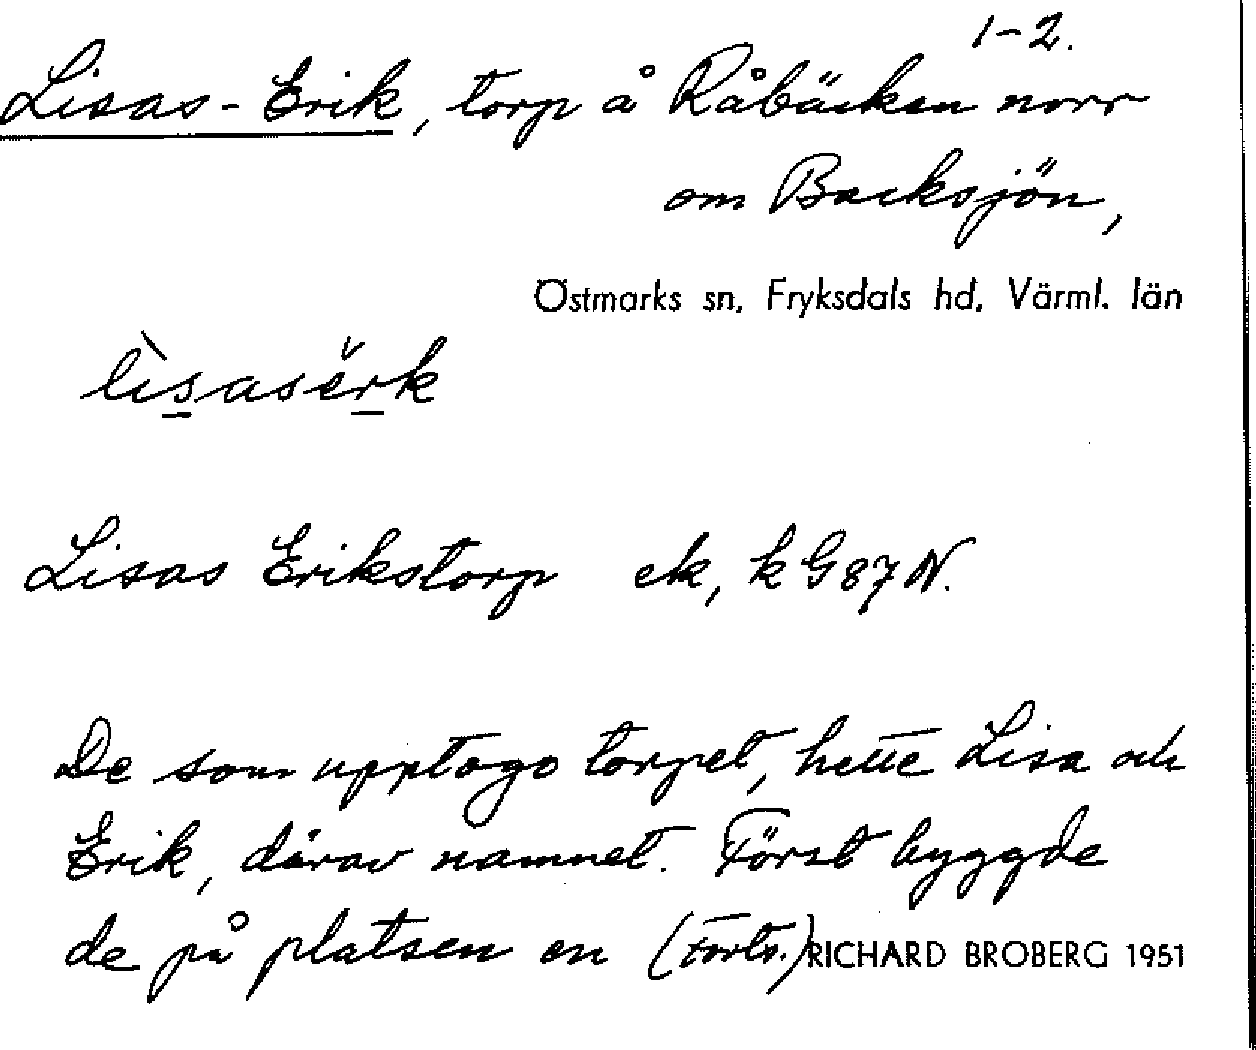 1-2.
Lisas-Erik, torp å Råbäcken norr
om Backsjön,
Östmarks sn, Fryksdals hd, Värml. län
lìsasĕrk
Lisas Erikstorp ek, k G87N.
De som upptogo torpet, hette Lisa och
Erik, därav namnet. Först byggde
de på platsen en (Forts.) RICHARD BROBERG 1951